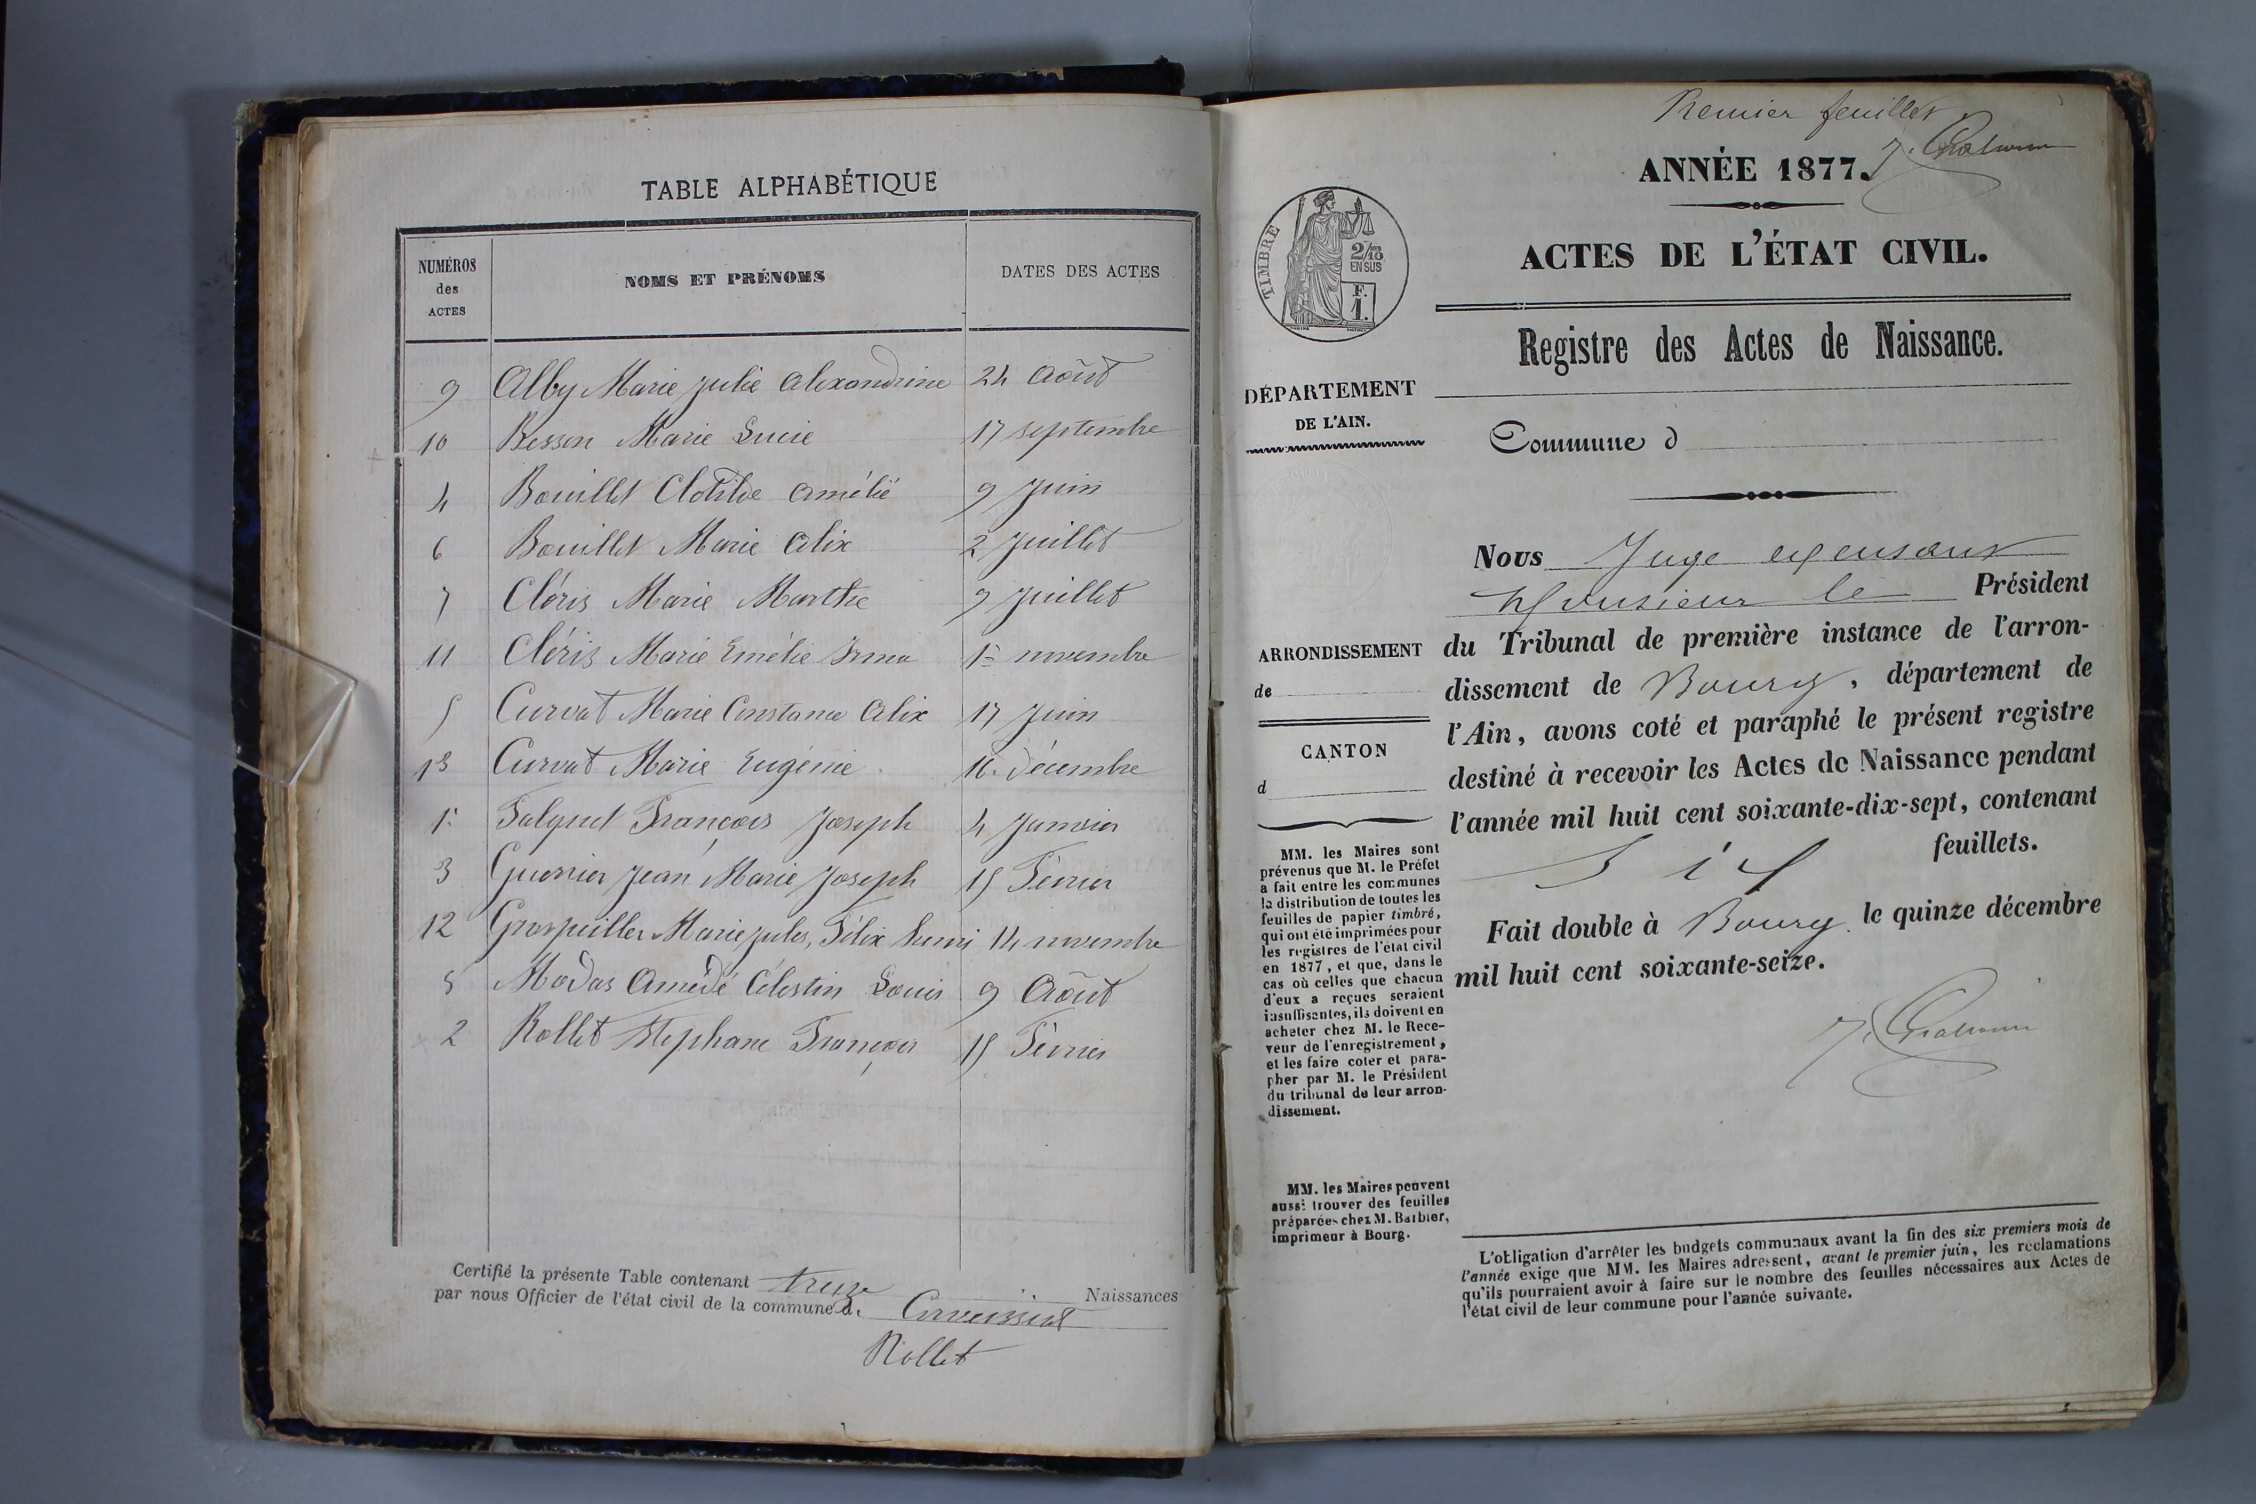 TABLE ALPHABÉTIQUE
NUMÉROS
des
ACTES
NOMS ET PRÉNOMS
DATES DES ACTES
9 Alby Marie Julie Alexandrine 24 Août
10 Besson Marie Lucie 17 septembre
4 Bouillet Clotilde Amélie 9 Juin
6 Bouillet Marie Alix 2 Juillet
7 Cléris Marie Marthe 9 Juillet
11 Cléris Marie Emélie Irma 1er novembre
5 Curvat Marie Constance Alix 17 Juin
13 Curvat Marie Eugénie 16 décembre
1er François Joseph 4 Janvier
3 Guerrier Jean Marie Joseph 15 Février
12 Marie Jules, Félix Henri 14 novembre
8 Modas Amédé Célestin Louis 9 Août
2 Rollet Stephane François 15 Février
Certifié la présente Table contenant treize Naissances
par nous Officier de l'état civil de la commune d. Corveissiat
Rollet
Premier feuillet
ANNÉE 1877.
ACTES DE L'ÉTAT CIVIL.
TIMBRE
2/10
EN SUS
F.
1.
Registre des Actes de Naissance.
DÉPARTEMENT
DE L'AIN.
Commune d
Nous Juge
Monsieur le Président
du Tribunal de première instance de l'arron-
dissement de Bourg, département de
l'Ain, avons coté et paraphé le présent registre
destiné à recevoir les Actes de Naissance pendant
l'année mil huit cent soixante-dix-sept, contenant
six feuillets.
Fait double à Bourg le quinze décembre
mil huit cent soixante-seize.
ARRONDISSEMENT
de
CANTON
d
MM. les Maires sont
prévenus que M. le Préfet
a fait entre les communes
la distribution de toutes les
feuilles de papier timbré,
qui ont été imprimées pour
les registres de l'état civil
en 1877, et que, dans le
cas où celles que chacun
d'eux a reçues seraient
insuffisantes, ils doivent en
acheter chez M. le Rece-
veur de l'enregistrement,
et les faire coter et para-
pher par M. le Président
du tribunal de leur arron-
dissement.
MM. les Maires peuvent
aussi trouver des feuilles
préparées chez M. Barbier,
imprimeur à Bourg.
L'obligation d'arrêter les budgets communaux avant la fin des six premiers mois de
l'année exige que MM. les Maires adressent, avant le premier juin, les reclamations
qu'ils pourraient avoir à faire sur le nombre des feuilles nécessaires aux Actes de
l'état civil de leur commune pour l'année suivante.